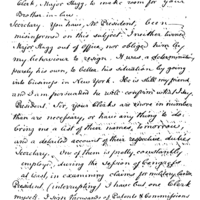 Clerk, Major Stagg, to make room for your
Brother-in-law.
Secretary. You have, Mr President, been
misinformed on this subject. I neither turned
Major Stagg out of office, nor obliged him by
my behaviour to resign. It was a
purely his own, to better his situation by going
into business in New York. He is still my friend,
and I am persuaded he will confirm what I say.
President. Sir, your Clerks are more in number
than are necessary, or have any thing to do.
bring me a list of their names, tomorrow,
and a detailed account of their respective duties
Secretary. One of them is pretty constantly
employed, during the Session of Congress
at least, in examining claims for military lands.
President, (interrupting) I have but one Clerk
myself. I sign thousands of Patents & Commissions